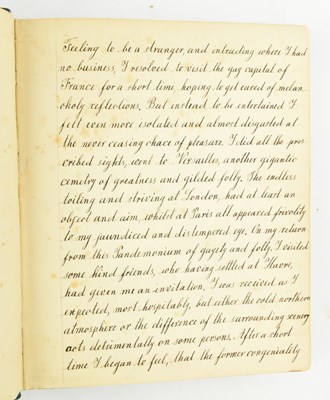 Feeling to be a stranger, and intruding where I had
no business, I resolved to visit the gay capital of
France for a short time, hoping to get cured of melan
choly reflections. But instead to be entertained I
felt even more isolated and almost disgusted at
the never ceasing chace of pleasure. I did all the pres
cribed sights, went to Versailles, another gigantic
cemetry of greatness and gilded folly. The endless
toiling and striving at London, had at least an
object and aim, whilst at Paris all appeared frivolity
to my jaundiced and distempered eye. On my return
from this Pandemonium of gayety and folly, I visited
some kind friends, who having settled at Havre,
had given me an invitation. I was received as I
expected, most hospitably, but either the cold northern
atmosphere or the difference of the surrounding scenery
acts detrimentally on some persons. After a short
time I began to feel, that the former congeniality